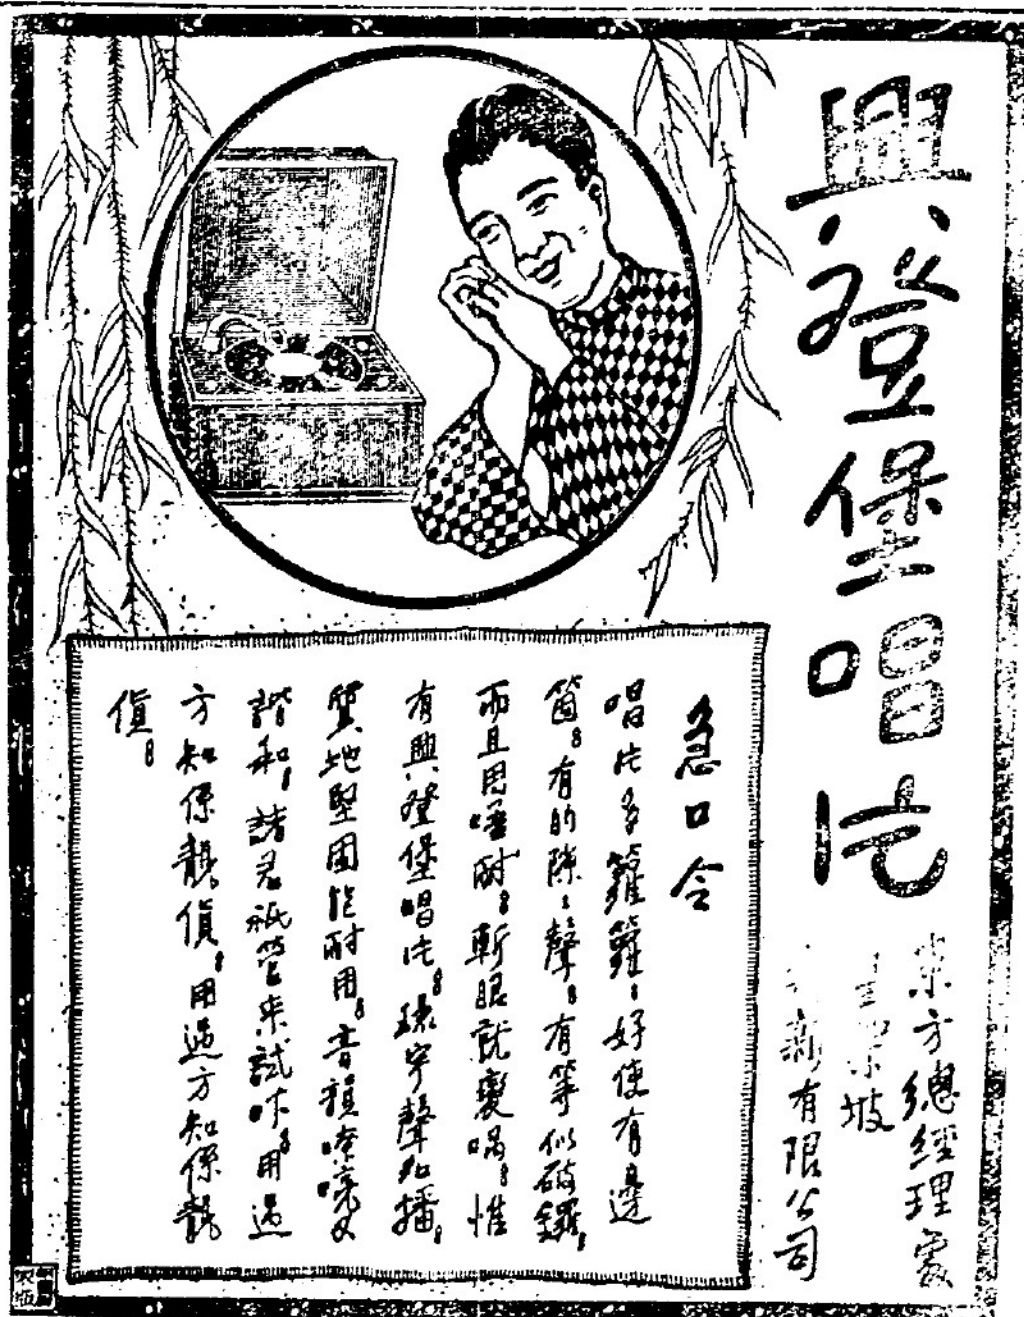 興登堡唱片
東方總經理家
坡
有限公司
急口令
唱片多籮籮：好使有邊
箇。有的隙：聲。有等似破鑼，
而且用唔耐。斬眼就變喎。惟
有興登堡唱片。聲如播，
質地堅固能耐用。音韻嘹喨又
諧和，諸君祇管來試吓。用過
方知係靚貨。用過方知係靚
貨。